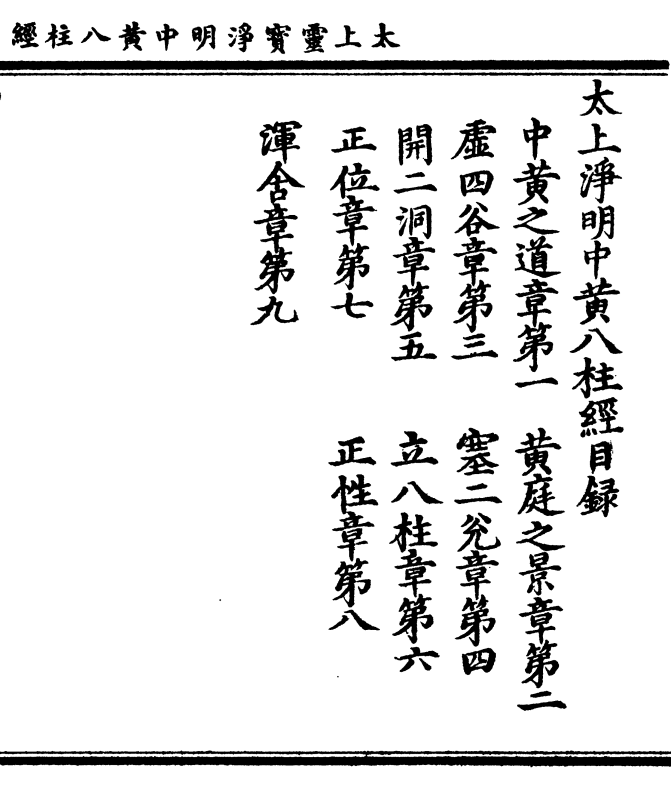 太上靈寳淨明中黃八柱經
太上淨明中黃八柱經目録
中黃之道章第一
黃庭之景章第二
虛四谷章第三
塞二兊章第四
開二洞章第五
立八柱章第六
正位章第七
正性章第八
渾舍章第九